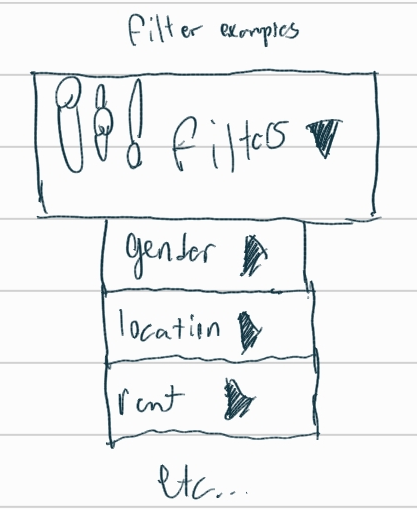 filter examples
filters
gender
location
rent
etc...